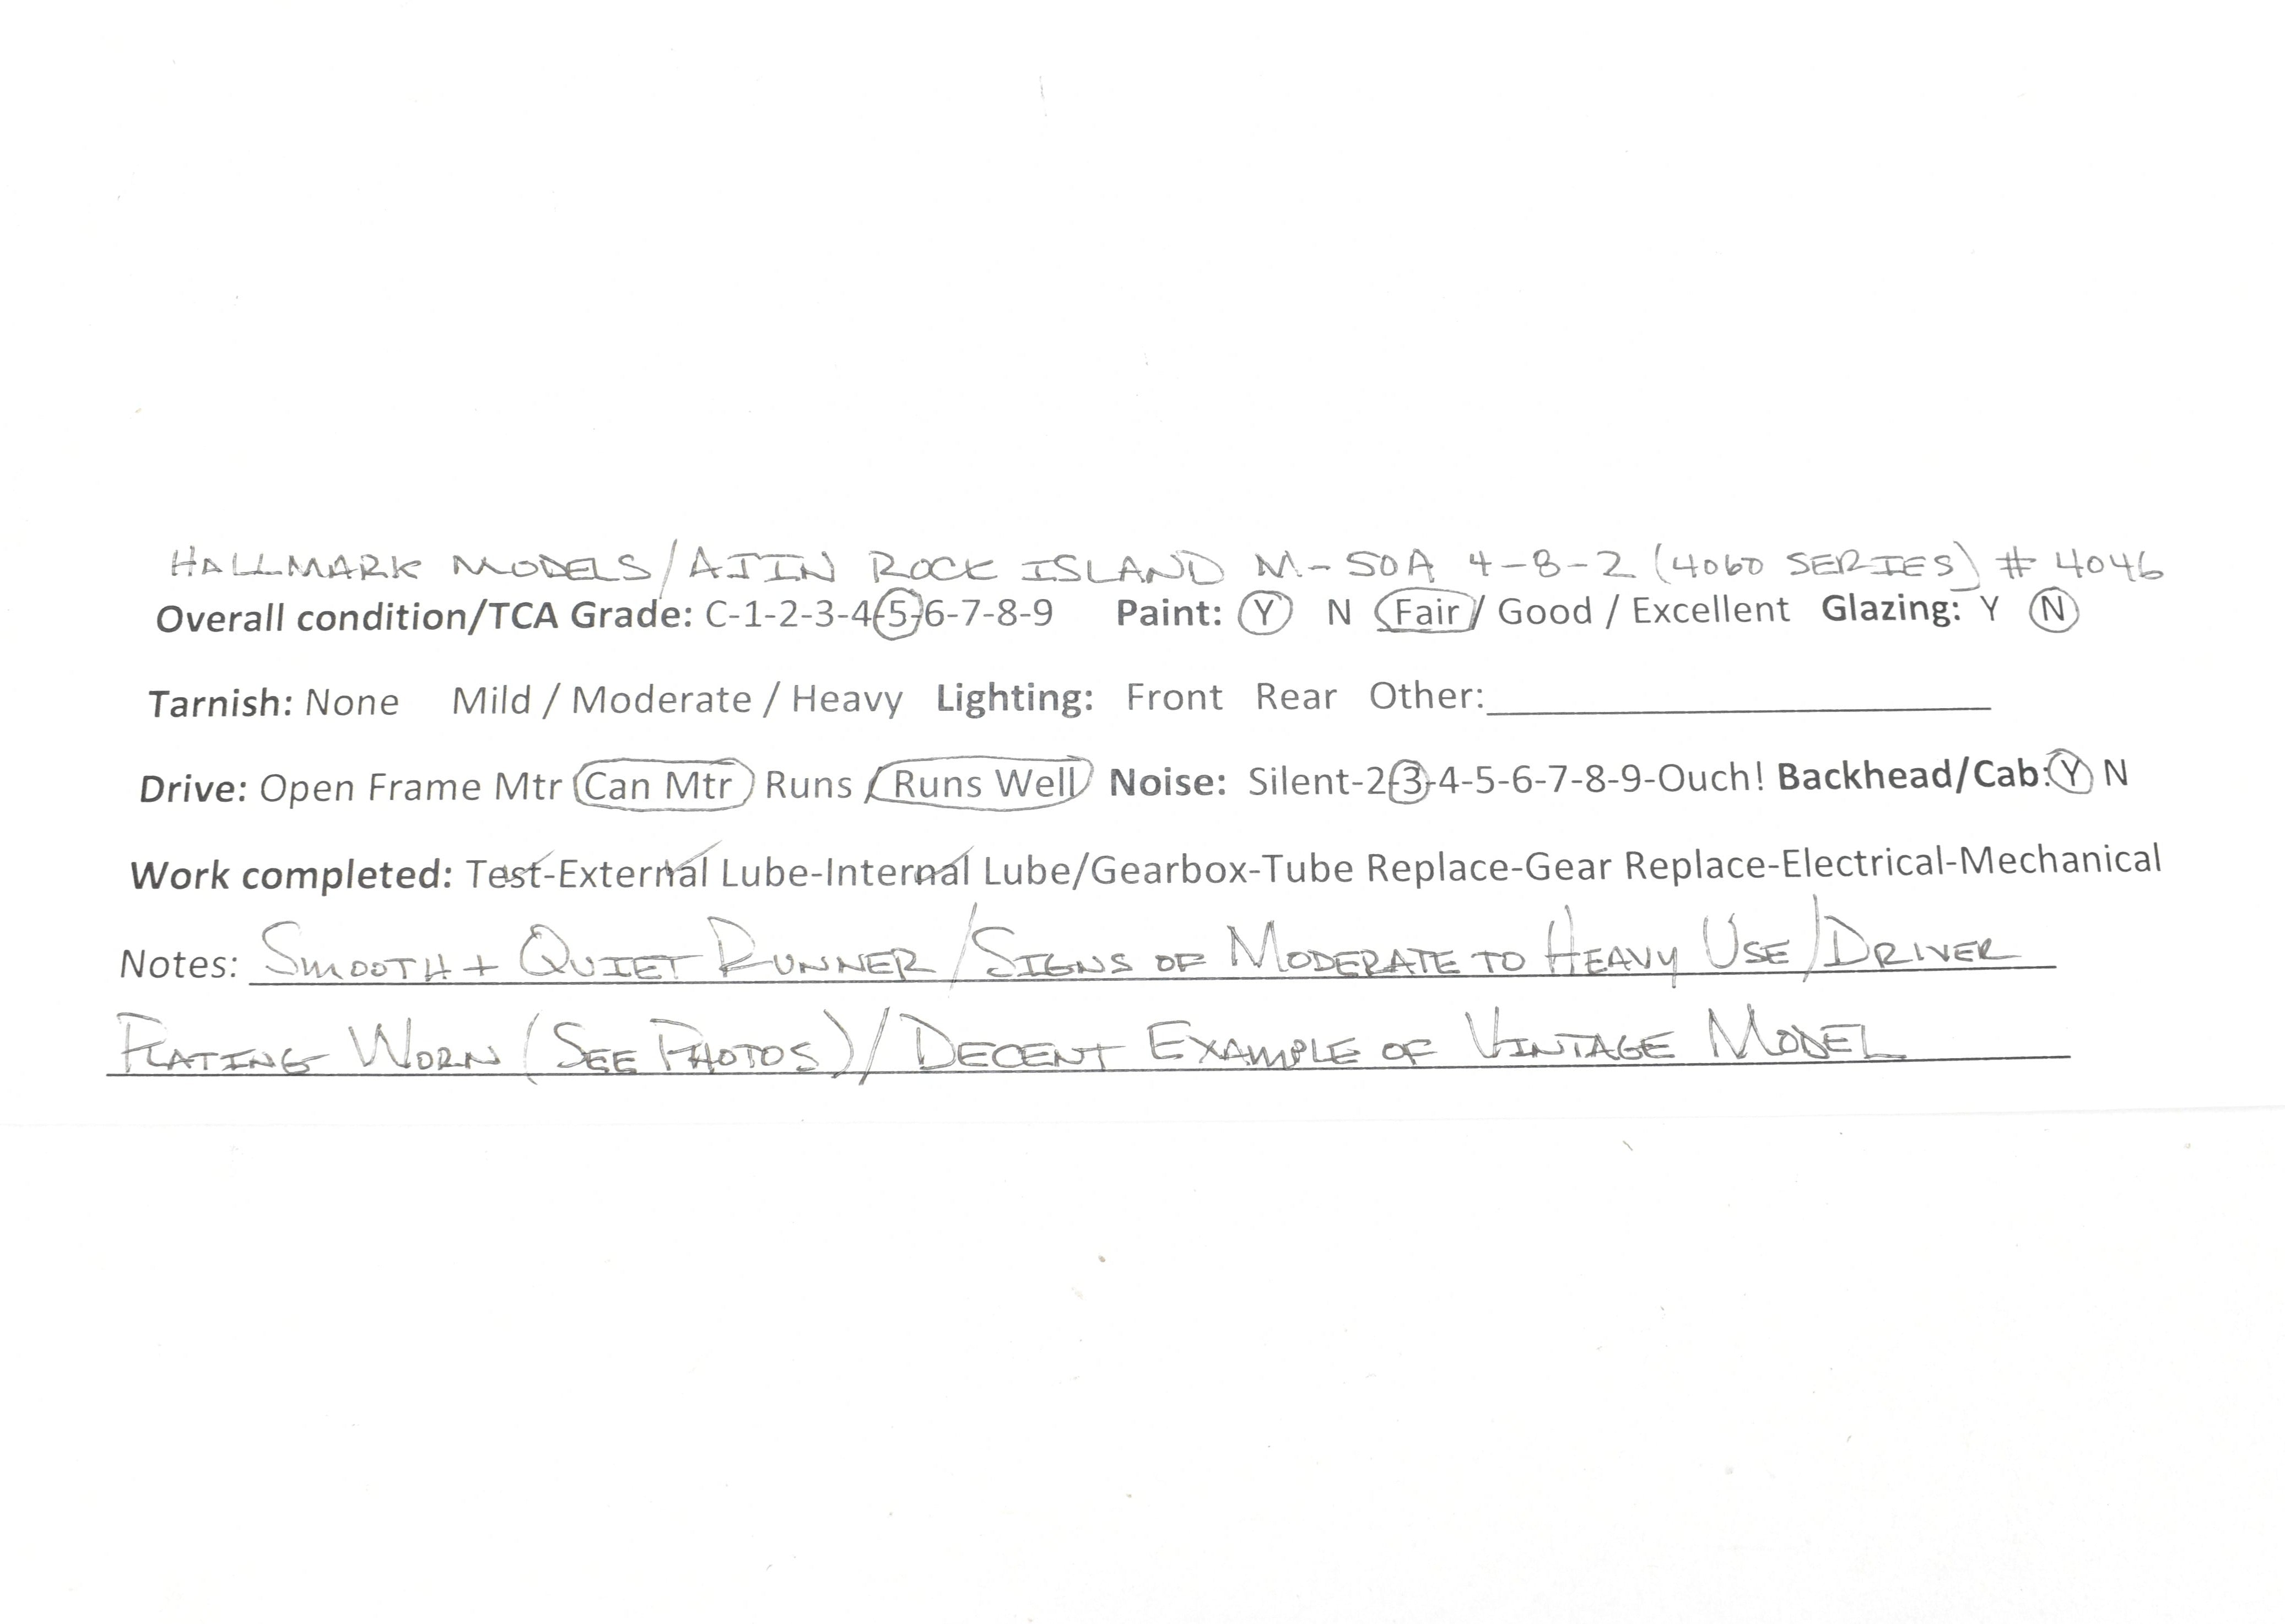 HALLMARK MODELS/AJIN ROCK ISLAND M-50A 4-8-2 (4060 SERIES) # 4046
Overall condition/TCA Grade: C-1-2-3-4-5-6-7-8-9 Paint: Y N Fair / Good / Excellent Glazing: Y N
Tarnish: None Mild / Moderate / Heavy Lighting: Front Rear Other:
Drive: Open Frame Mtr Can Mtr Runs / Runs Well Noise: Silent-2-3-4-5-6-7-8-9-Ouch! Backhead/Cab: Y N
Work completed: Test-External Lube-Internal Lube/Gearbox-Tube Replace-Gear Replace-Electrical-Mechanical
Notes: SMOOTH + QUIET RUNNER / SIGNS OF MODERATE TO HEAVY USE / DRIVER
PLATING WORN (SEE PHOTOS) / DECENT EXAMPLE OF VINTAGE MODEL